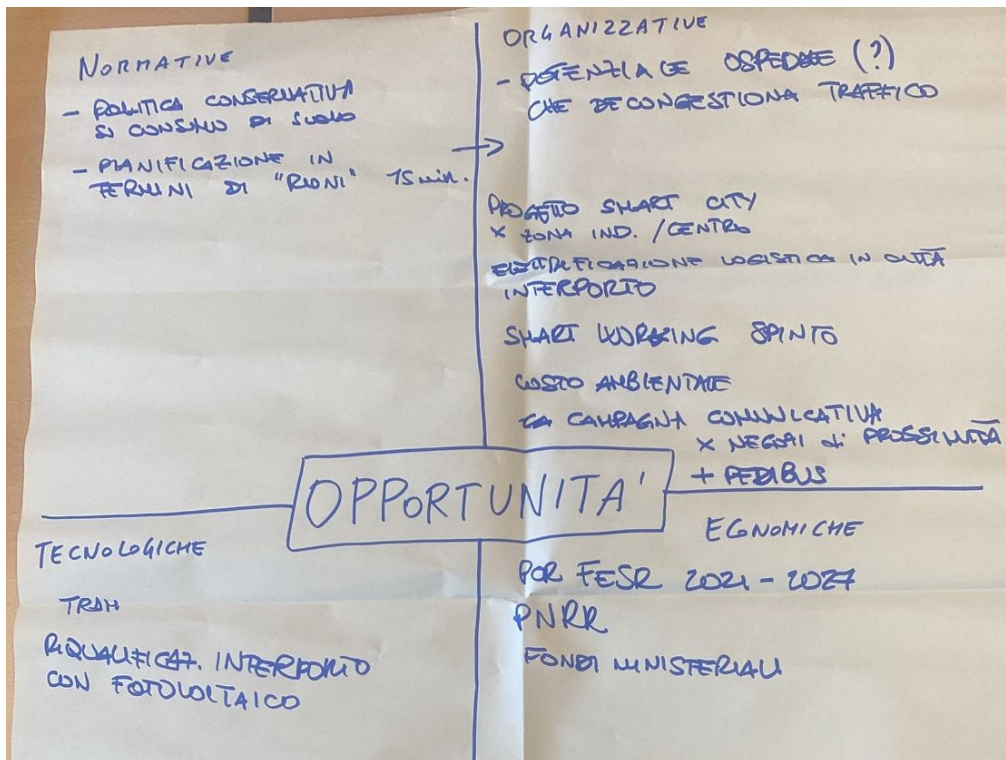 NORMATIVE
- POLITICA CONSERVATIVA
SU CONSUMO DI SUOLO
- PIANIFICAZIONE IN
TERMINI DI "RIONI" 15 min.
ORGANIZZATIVE
- OSPEDALE (?)
CHE DECONGESTIONA TRAFFICO
PROGETTO SMART CITY
X ZONA IND. / CENTRO
ELETTRIFICAZIONE LOGISTICA IN CITTÀ
INTERPORTO
SMART WORKING SPINTO
COSTO AMBIENTALE
CAMPAGNA COMUNICATIVA
X NEGOZI di PROSSIMITÀ
+ PEDIBUS
OPPORTUNITA'
TECNOLOGICHE
TRAM
RIQUALIFICAZ. INTERPORTO
CON FOTOVOLTAICO
ECONOMICHE
POR FESR 2021 - 2027
PNRR
FONDI MINISTERIALI